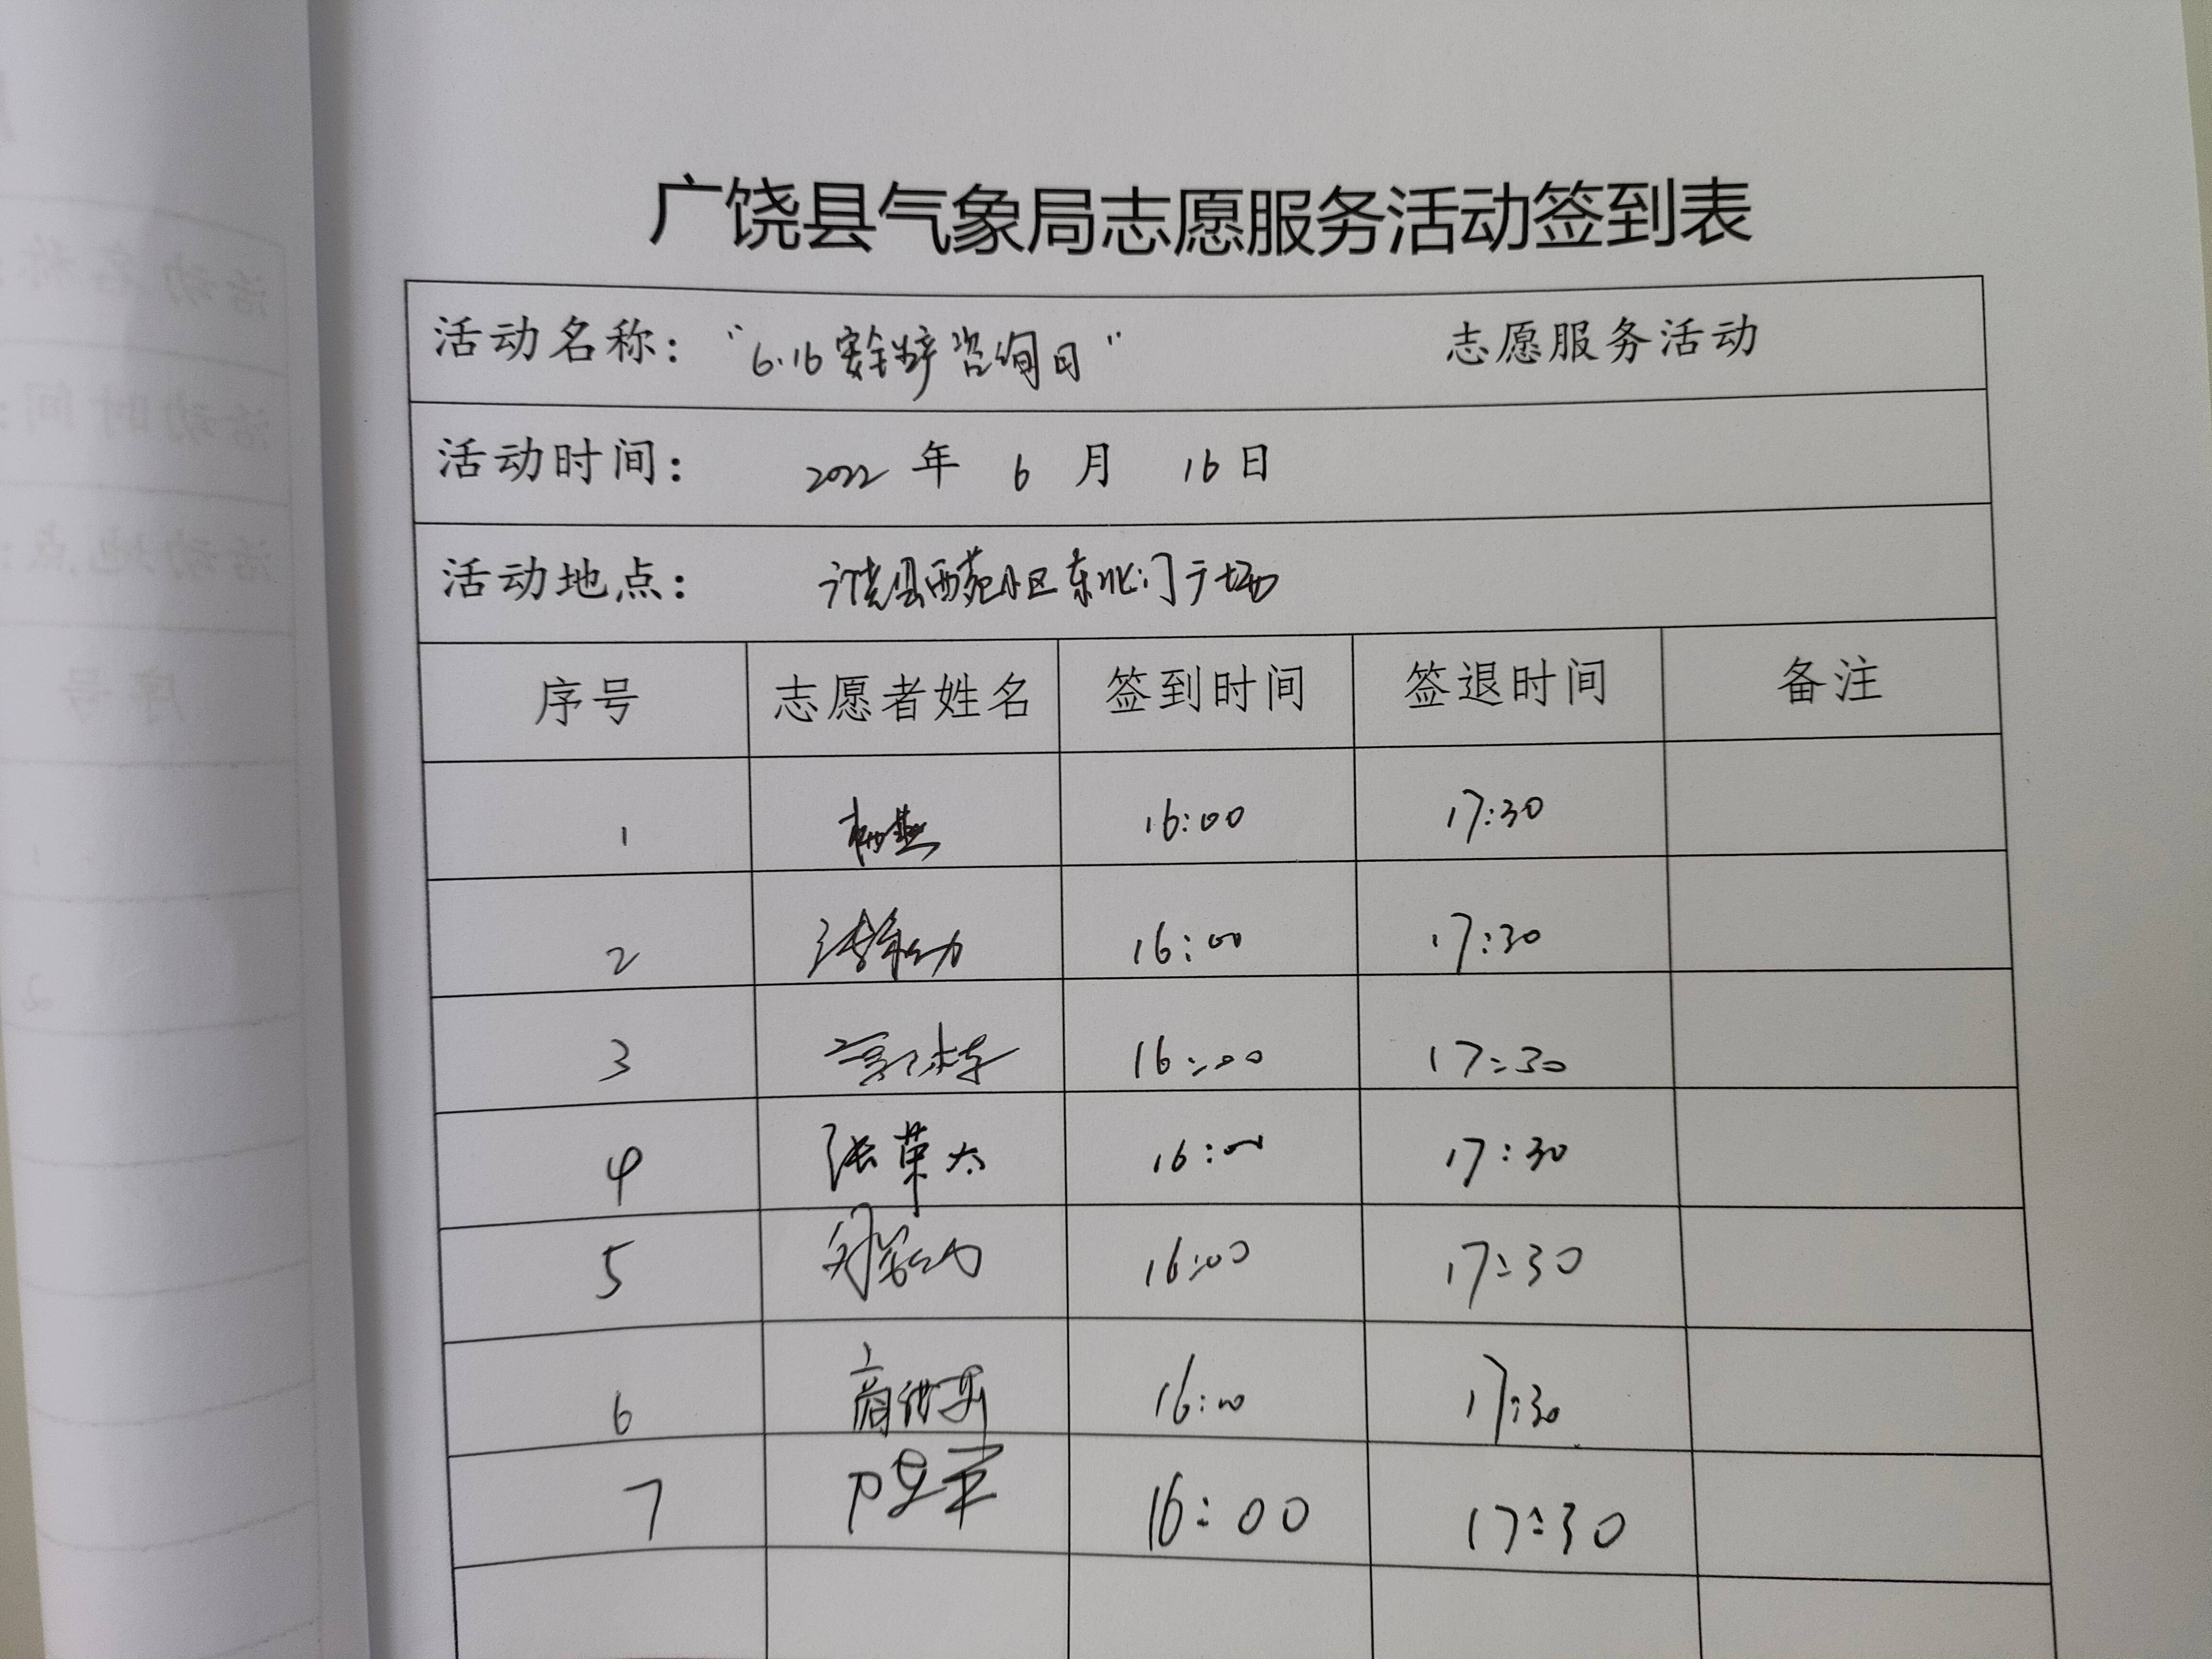 广饶县气象局志愿服务活动签到表
活动名称："6.16安全生产咨询日" 志愿服务活动
活动时间： 2022 年 6 月 16 日
活动地点： 广饶县西苑小区东北门广场
序号 志愿者姓名 签到时间 签退时间 备注
1 16:00 17:30
2 16:00 17:30
3 16:00 17:30
4 张荣太 16:00 17:30
5 16:00 17:30
6 16:00 17:30
7 16:00 17:30